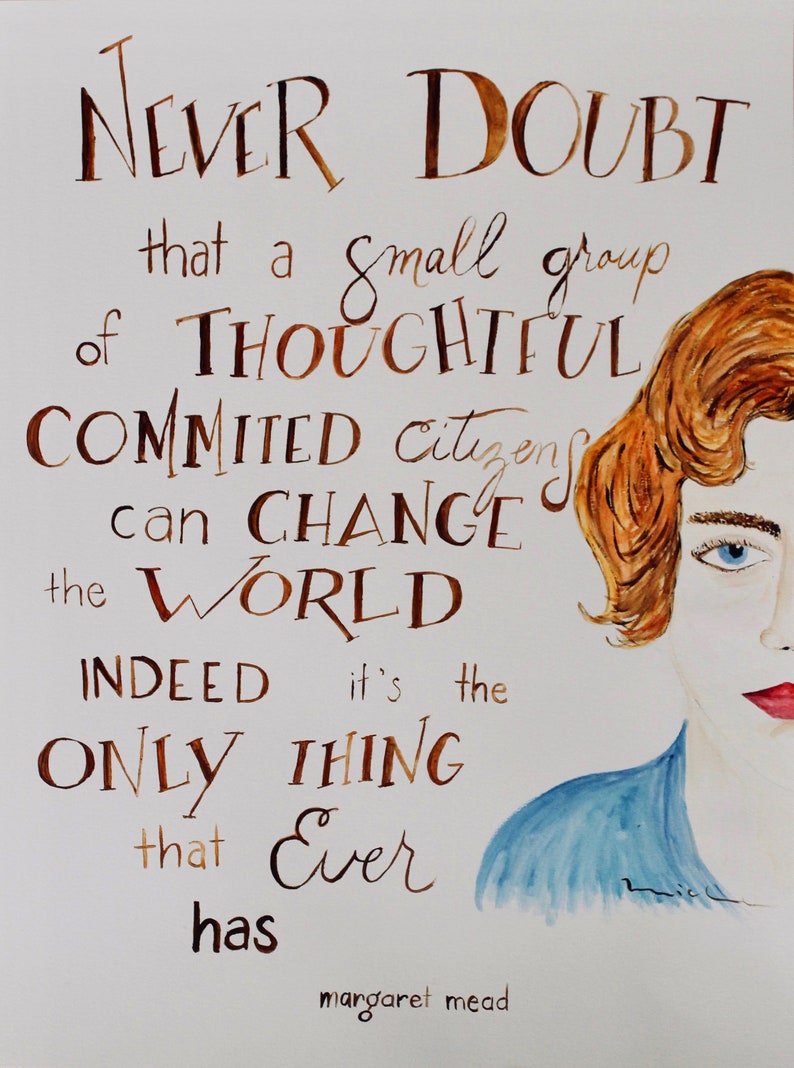 NEVER DOUBT
that a small group
of THOUGHTFUL
COMMITED citizens
can CHANGE
the WORLD
INDEED it's the
ONLY THING
that Ever
has
margaret mead